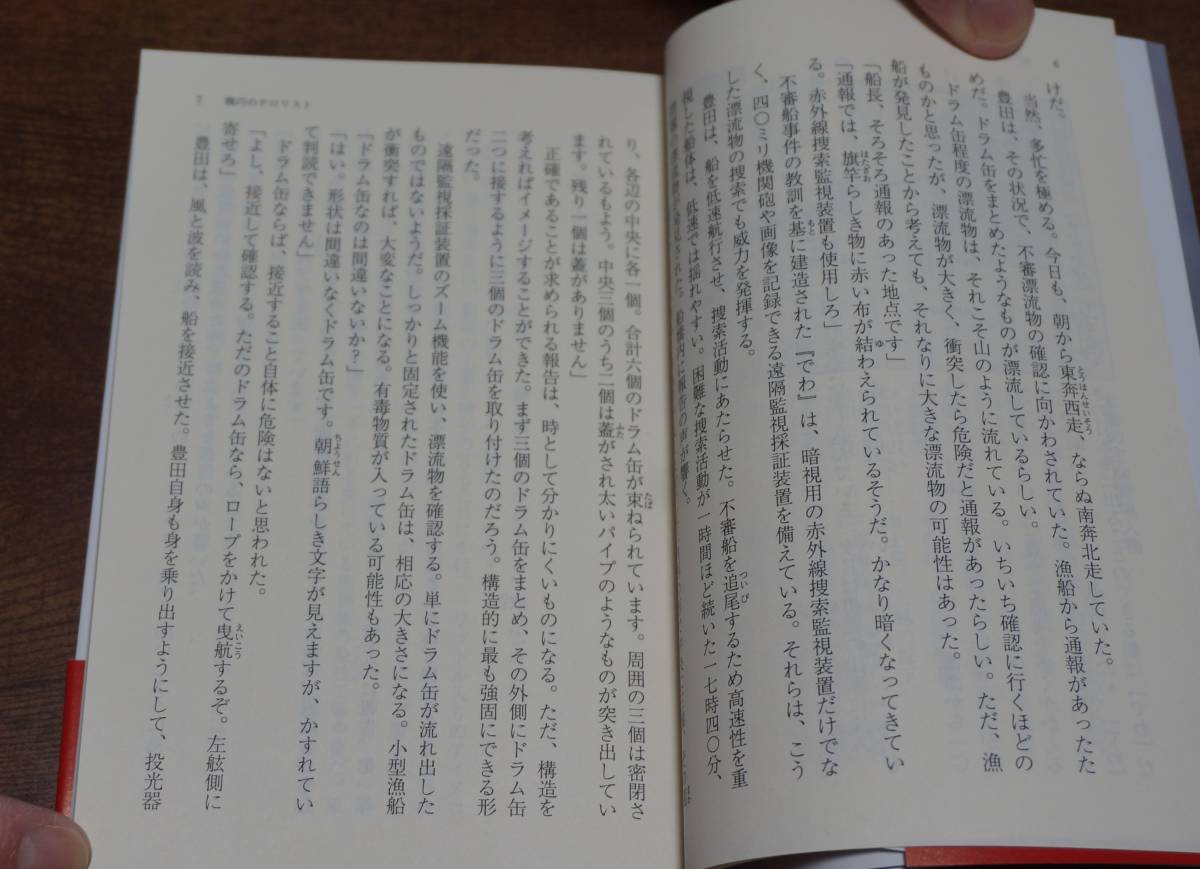 6
けだ。
当然、多忙を極める。今日も、朝から東奔西走、ならぬ南奔北走していた。
豊田は、その状況で、不審漂流物の確認に向かわされていた。漁船から通報があったた
めだ。ドラム缶をまとめたようなものが漂流しているらしい。
ドラム缶程度の漂流物は、それこそ山のように流れている。いちいち確認に行くほどの
ものかと思ったが、漂流物が大きく、衝突したら危険だと通報があったらしい。ただ、漁
船が発見したことから考えても、それなりに大きな漂流物の可能性はあった。
「船長、そろそろ通報のあった地点です」
「通報では、旗竿らしき物に赤い布が結わえられているそうだ。かなり暗くなってきてい
る。赤外線捜索監視装置も使用しろ」
不審船事件の教訓を基に建造された『でわ』は、暗視用の赤外線捜索監視装置だけでな
く、四〇ミリ機関砲や画像を記録できる遠隔監視採証装置を備えている。それらは、こう
した漂流物の捜索でも威力を発揮する。
豊田は、船を低速航行させ、捜索活動にあたらせた。不審船を追尾するため高速性を重
視した船体は、低速では揺れやすい。困難な捜索活動が一時間ほど続いた一七時四〇分、
船橋内に報告の声が響く。
り、各辺の中央に各一個。合計六個のドラム缶が束ねられています。周囲の三個は密閉さ
れているもよう。中央三個のうち二個は蓋がされ太いパイプのようなものが突き出してい
ます。残り一個は蓋がありません」
正確であることが求められる報告は、時として分かりにくいものになる。ただ、構造を
考えればイメージすることができた。まず三個のドラム缶をまとめ、その外側にドラム缶
二つに接するように三個のドラム缶を取り付けたのだろう。構造的に最も強固にできる形
だった。
遠隔監視採証装置のズーム機能を使い、漂流物を確認する。単にドラム缶が流れ出した
ものではないようだ。しっかりと固定されたドラム缶は、相応の大きさになる。小型漁船
が衝突すれば、大変なことになる。有毒物質が入っている可能性もあった。
「ドラム缶なのは間違いないか？」
「はい。形状は間違いなくドラム缶です。朝鮮語らしき文字が見えますが、かすれてい
て判読できません」
ドラム缶ならば、接近すること自体に危険はないと思われた。
「よし、接近して確認する。ただのドラム缶なら、ロープをかけて曳航するぞ。左舷側に
寄せろ」
豊田は、風と波を読み、船を接近させた。豊田自身も身を乗り出すようにして、投光器
7 機巧のテロリスト